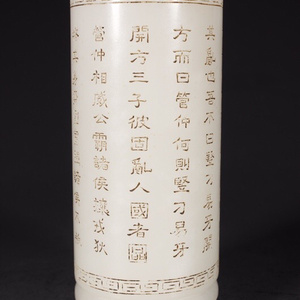 其亂也吾不曰豎刁易牙開
方而曰管仲何則豎刁易牙
開方三子彼固亂人國者
管仲相威公霸諸侯攘戎狄